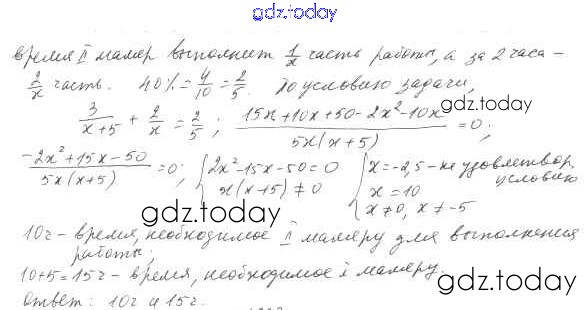 gdz.today
время II маляр выполнит 1/x часть работы, а за 2 часа –
2/x часть. 40% = 4/10 = 2/5. По условию задачи,
3/(x+5) + 2/x = 2/5; (15x+10x+50-2x²-10x)/(5x(x+5)) = 0;
gdz.today
(-2x²+15x-50)/(5x(x+5)) = 0; { 2x²-15x-50=0 x(x+5)≠0 { x=-2,5 – не удовлетвор. условию x=10 x≠0, x≠-5
gdz.today
10ч – время, необходимое II маляру для выполнения
работы;
10+5=15ч – время, необходимое I маляру.
gdz.today
Ответ: 10ч и 15ч.